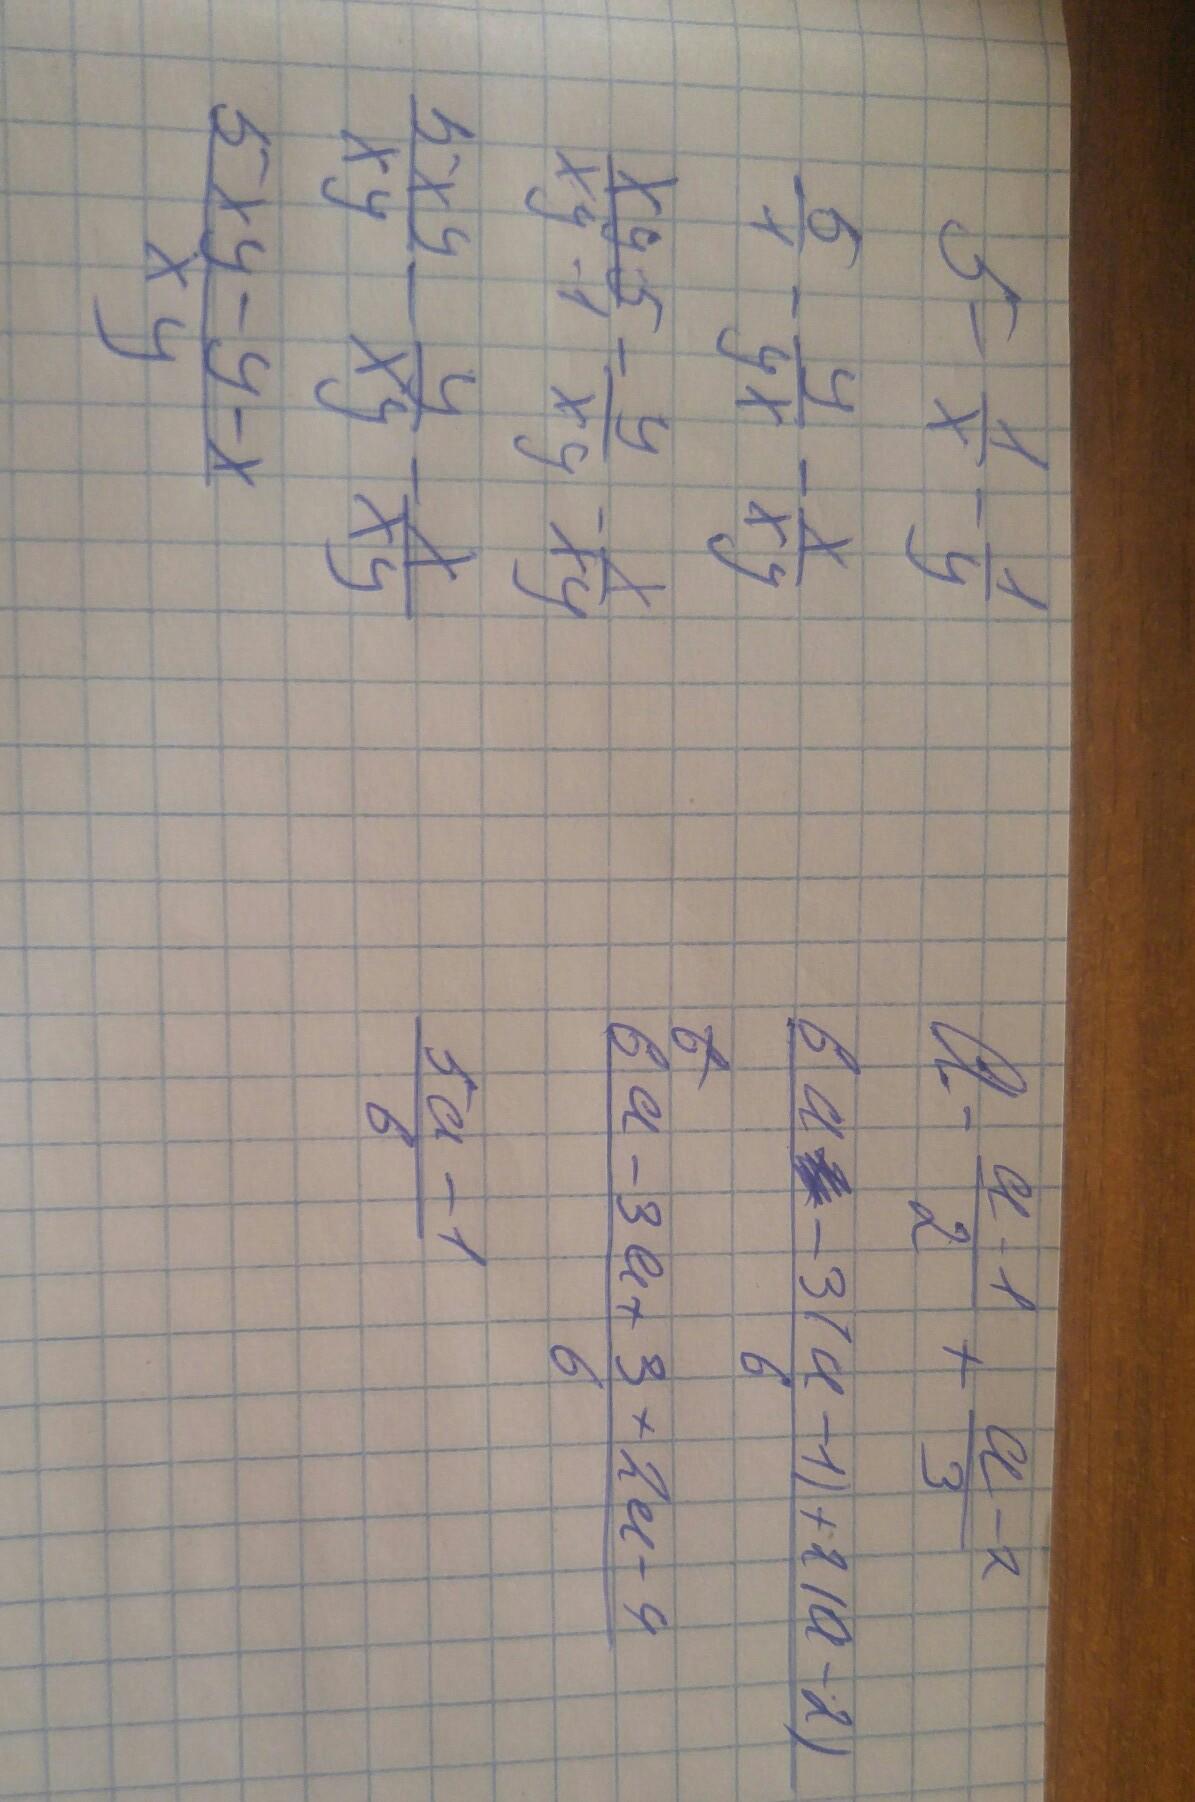 5 - 1/x - 1/y
5/1 - y/yx - x/xy
xy·5/xy·1 - y/xy - x/xy
5xy/xy - y/xy - x/xy
5xy-y-x/xy
a - a-1/2 + a-2/3
6a - 3(a-1)+2(a-2)/6
6a-3a+3+2a-4/6
5a-1/6